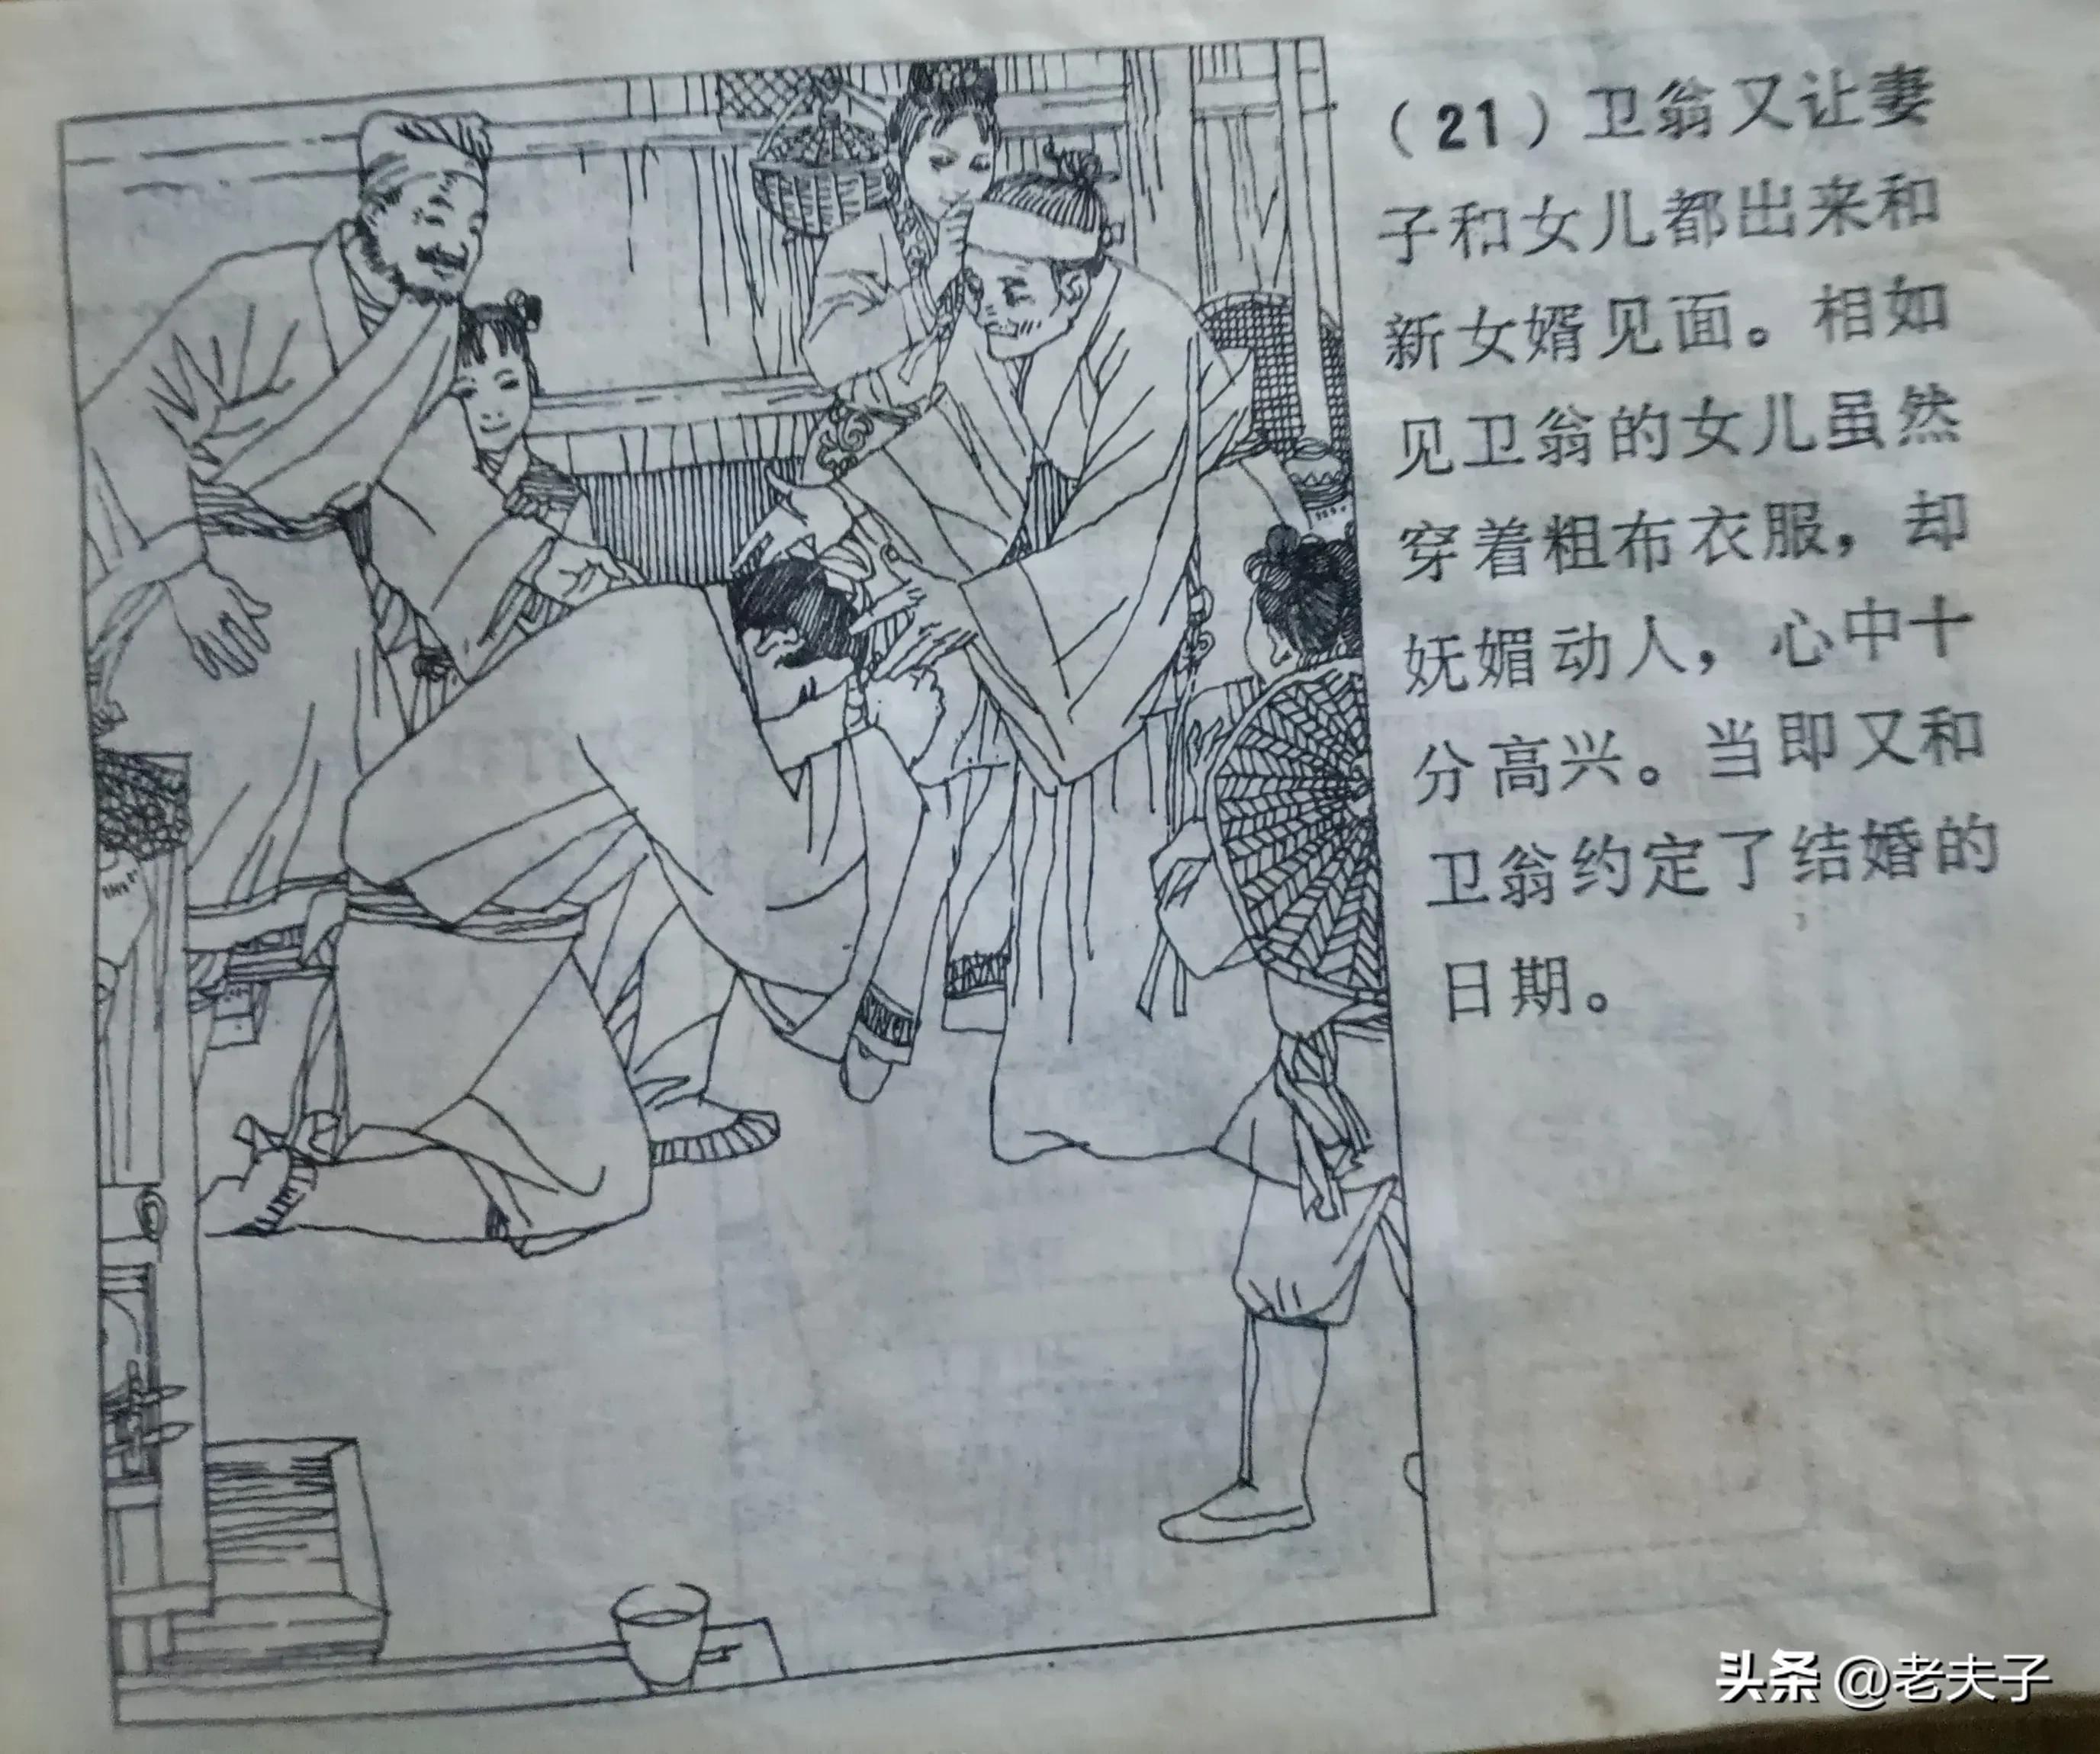 （21）卫翁又让妻
子和女儿都出来和
新女婿见面。相如
见卫翁的女儿虽然
穿着粗布衣服，却
妩媚动人，心中十
分高兴。当即又和
卫翁约定了结婚的
日期。
头条 @老夫子